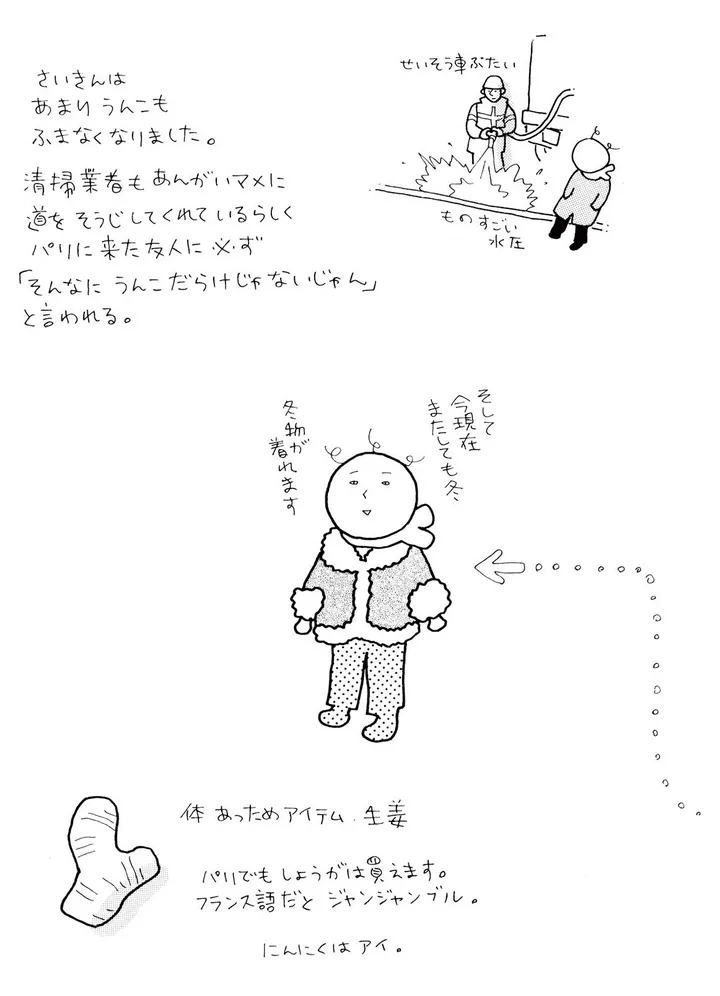 さいきんは
あまり うんこも
ふまなくなりました。
清掃業者も あんがいマメに
道を そうじしてくれているらしく
パリに 来た友人に 必ず
「そんなに うんこだらけじゃないじゃん」
と言われる。
せいそう車ぶたい
ものすごい
水圧
そして
今現在
またしても冬
冬物が
着れます
体 あっためアイテム. 生姜
パリでも しょうがは買えます。
フランス語だと ジャンジャンブル。
にんにくは アイ。